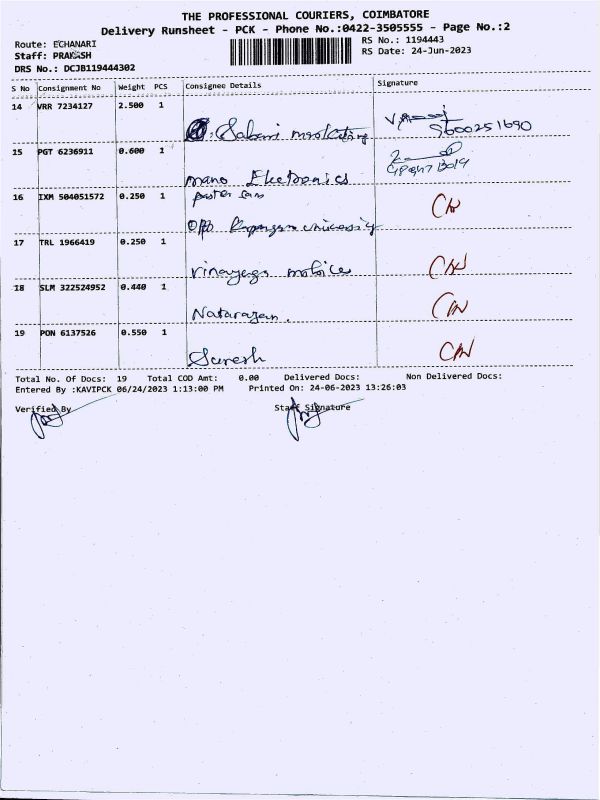 THE PROFESSIONAL COURIERS, COIMBATORE
Delivery Runsheet - PCK - Phone No.:0422-3505555 - Page No.:2
Route: ECHANARI RS No.: 1194443
Staff: PRAKASH RS Date: 24-Jun-2023
DRS No.: DCJB119444302
S No Consignment No Weight PCS Consignee Details Signature
14 VRR 7234127 2.500 1
Sabari marketing 9600251690
15 PGT 6236911 0.600 1
mano Electronics
16 IXM 504051572 0.250 1
opp university
17 TRL 1966419 0.250 1
vinayaga
18 SLM 322524952 0.440 1
Natarajan.
19 PON 6137526 0.550 1
Suresh
Total No. Of Docs: 19 Total COD Amt: 0.00 Delivered Docs: Non Delivered Docs:
Entered By :KAVIPCK 06/24/2023 1:13:00 PM Printed On: 24-06-2023 13:26:03
Verified By Staff Signature